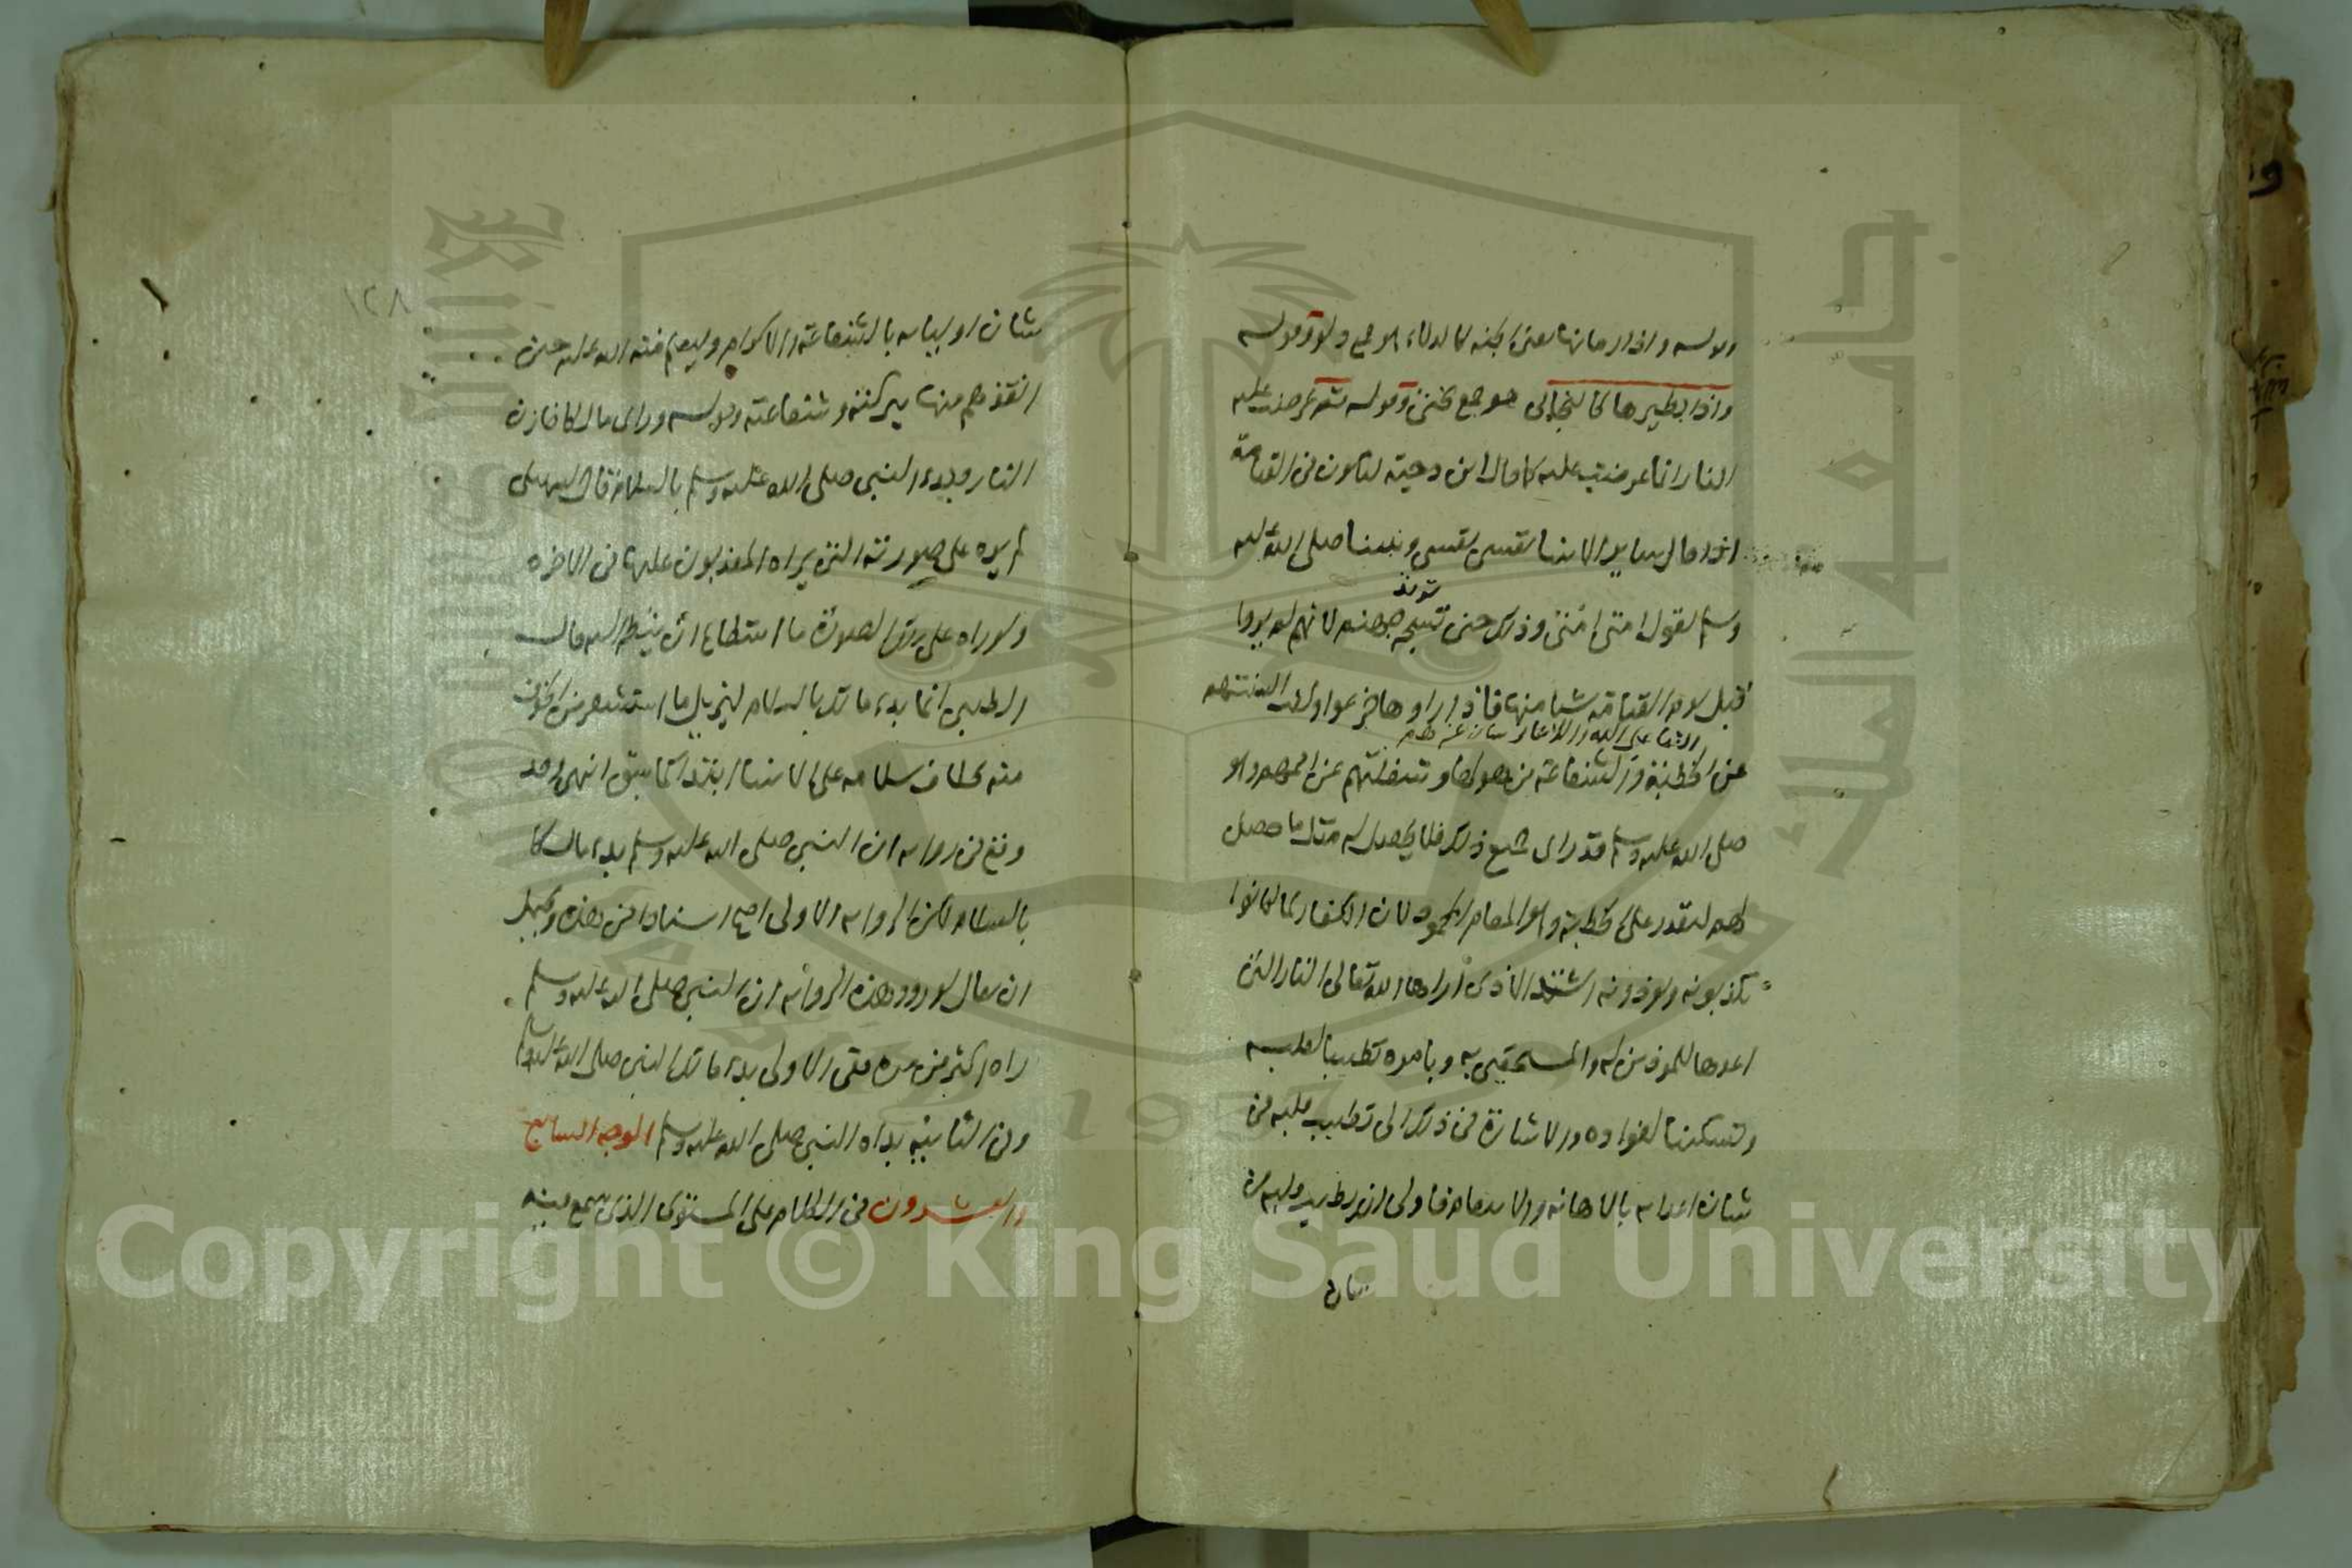 وقوله واذا رمانها يعنى الجنة كالدلاء هو جمع دلو وقوله
واذا بطيرها كالبخاتى هو جمع بختى وقوله ثم عرضت عليه
النار انما عرضت عليه كما قال ابن دحية لتكون فى القيامة
اذا قال ساير الانبيا نفسى نفسى ونبينا صلى الله عليه
وسلم يقول امتى امتى وذلك حين تسجر جهنم لانهم لم يروا
قبل يوم القيامة شيا منها فاذا راوها جزعوا وكفت السنتهم
عن الخطبة والشفاعة من هولها وشغلتهم عن اممهم وهو
صلى الله عليه وسلم قد راى جميع ذلك فلا يحصل له مثل ما حصل
لهم ليقدر على الخطبة وهو المقام المحمود لان الكفار لما كانوا
يكذبونه ويوذونه اشد الاذى اراه الله تعالى النار التى
اعدها للموذين له والمستخفين به وبامره تطييبا لقلبه
وتسكينا لفواده والاشارة فى ذلك الى تطييب قلبه فى
شان اعدايه بالاهانة والانتقام فاولى ان يطيب قلبه فى
شان
شان اوليايه بالشفاعة والاكرام وليعلم منة الله عليه حين
انقذهم منها ببركته وشفاعته وقوله وراى مالكا خازن
النار وبدء النبى صلى الله عليه وسلم بالسلام قال السهيلى
لم يره على صورته التى يراه المعذبون عليها فى الاخره
ولو راه على تلك الصورة ما استطاع ان ينظر اليه قال
الطيبى انما بدء مالك بالسلام ليزيل ما استشعر من الخوف
منه بخلاف سلامه على الانبيا ابتدا كما سبق انتهى وقد
وقع فى رواية ان النبى صلى الله عليه وسلم بدء مالكا
بالسلام لكن الرواية الاولى اصح اسنادا من هذه ويحتمل
ان يقال لورود هذه الرواية ان النبى صلى الله عليه وسلم
راه اكثر من مرة ففى الاولى بدء مالك النبى صلى الله عليه وسلم
وفى الثانية بداه النبى صلى الله عليه وسلم الوجه السابع
والعشرون فى الكلام على المستوى الذى سمع فيه
١٢٨